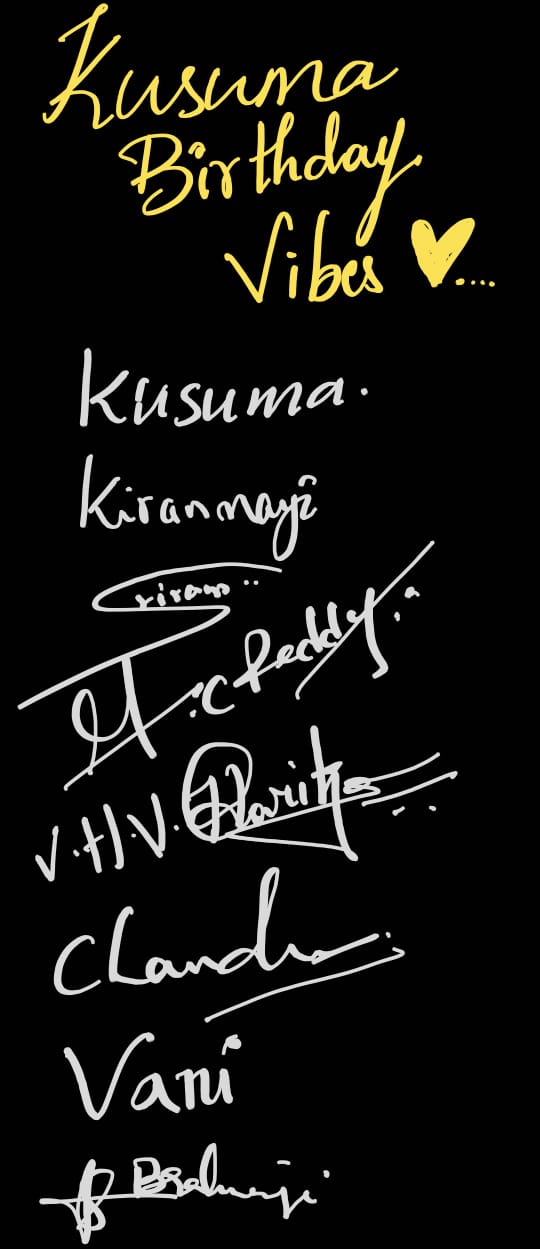 Kusuma
Birthday
Vibes ♥....
Kusuma.
Kiranmayi
Sriram
C Reddy
V.H.V. Harika
Chandra
Vani